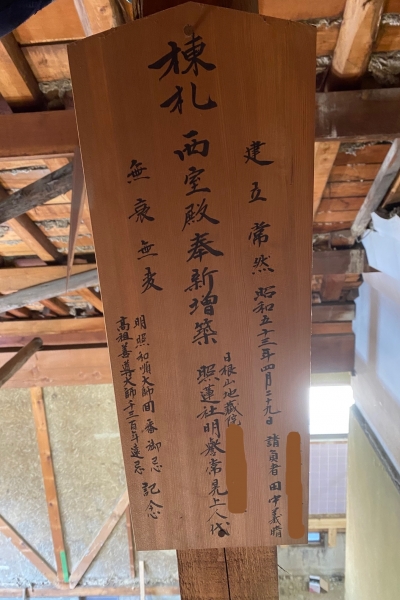 棟札
建立常然 昭和五十三年四月二十九日 請負者 田中義晴
西室殿奉新増築
日根山地蔵院
照蓮社明誉常晃上人代
無衰無変
明照和順大師開番御忌
高祖善導大師千三百年遠忌
記念